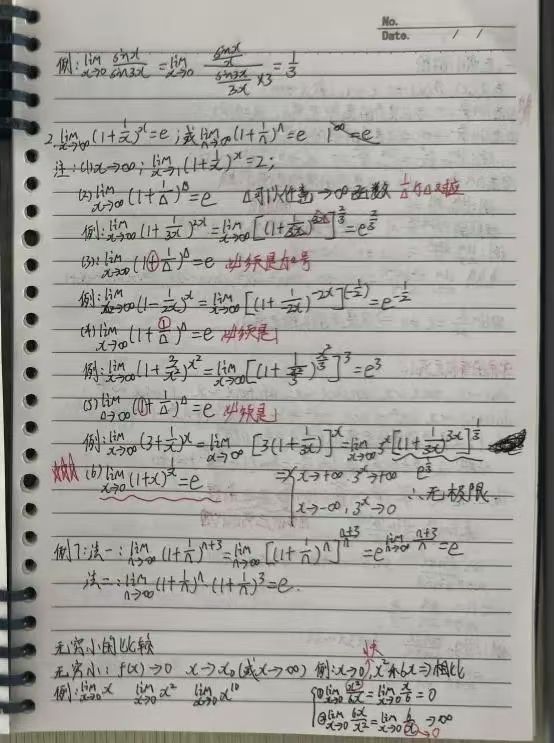 No.
Date. / /
例: lim x→0 sinx/sin3x = lim x→0 (sinx/x)/(sin3x/3x ×3) = 1/3
2. lim x→∞ (1+1/x)^x = e; 或 lim n→∞ (1+1/n)^n = e 1^∞ = e
注: (1) x→∞; lim x→1 (1+1/x)^x = 2;
(2) lim x→∞ (1+1/Δ)^Δ = e Δ可以任意→∞函数 1/Δ与Δ对应
例: lim x→∞ (1+1/3x)^2x = lim x→∞ [(1+1/3x)^3x]^2/3 = e^2/3
(3): lim x→∞ (1+1/Δ)^Δ = e 必须是加号
例: lim x→∞ (1-1/2x)^x = lim x→∞ [(1+1/-2x)^-2x]^(-1/2) = e^-1/2
(4) lim x→∞ (1+1/Δ)^Δ = e 必须是1
例: lim x→∞ (1+3/x²)^x² = lim x→∞ [(1+1/(x²/3))^x²/3]^3 = e³
(5) lim x→∞ (1+1/Δ)^Δ = e 必须是1
例: lim x→∞ (3+1/x)^x = lim x→∞ [3(1+1/3x)]^x = lim x→∞ 3^x [(1+1/3x)^3x]^1/3
e^1/3
(6) lim x→0 (1+x)^1/x = e ⇒ { x→+∞, 3^x→+∞
x→-∞, 3^x→0 ∴无极限.
例7: 法一: lim n→∞ (1+1/n)^n+3 = lim n→∞ [(1+1/n)^n]^(n+3)/n = e^lim n→∞ (n+3)/n = e
法二: lim n→∞ (1+1/n)^n · (1+1/n)^3 = e.
无穷小的比较
快
无穷小: f(x)→0 x→x₀(或x→∞) 例: x→0, x²和6x⇒相比
例: lim x→0 x lim x→0 x² lim x→0 x^10 { ① lim x→0 x²/6x = lim x→0 x/6 = 0
② lim x→0 6x/x² = lim x→0 6/x →∞
→0